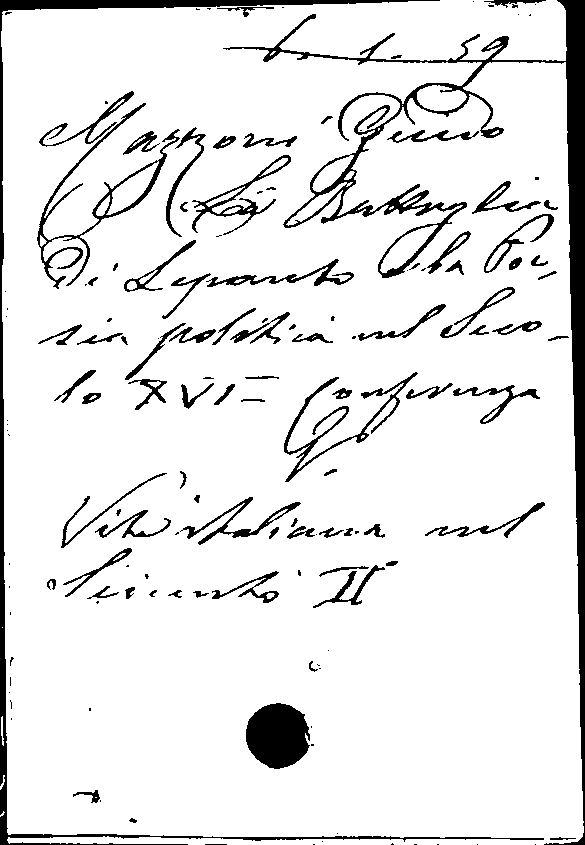 6. 1. 59
Mazzoni Guido
(La Battaglia
di Lepanto e la Poe-
sia politica nel Seco-
lo XVI= Conferenza
Vita italiana nel
Seicento II